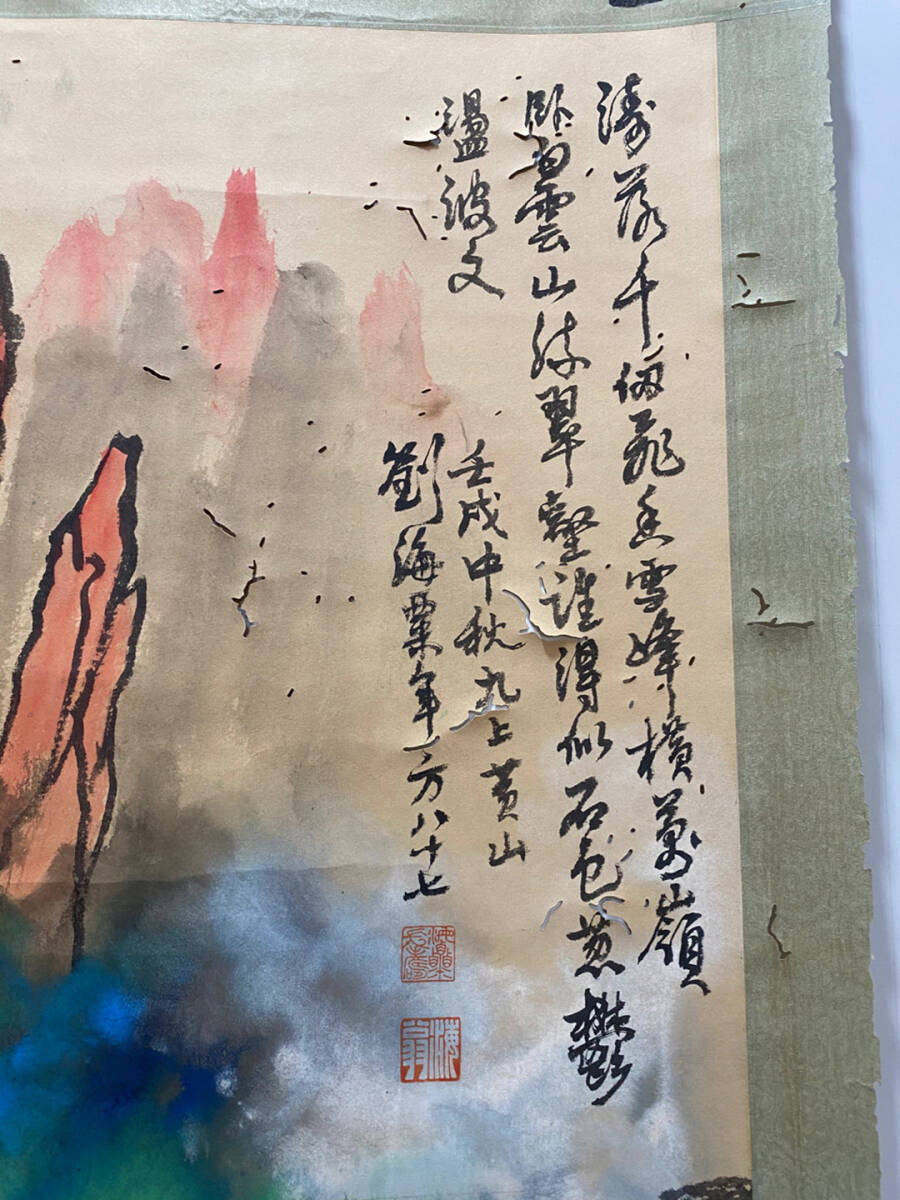 涛落千仞飛無雪峰橫萬嶺
臥看雲山殊翠壑誰得似石包蔥鬱
溫波文
壬戌中秋九上黃山
劉海粟年方八十七
海翁